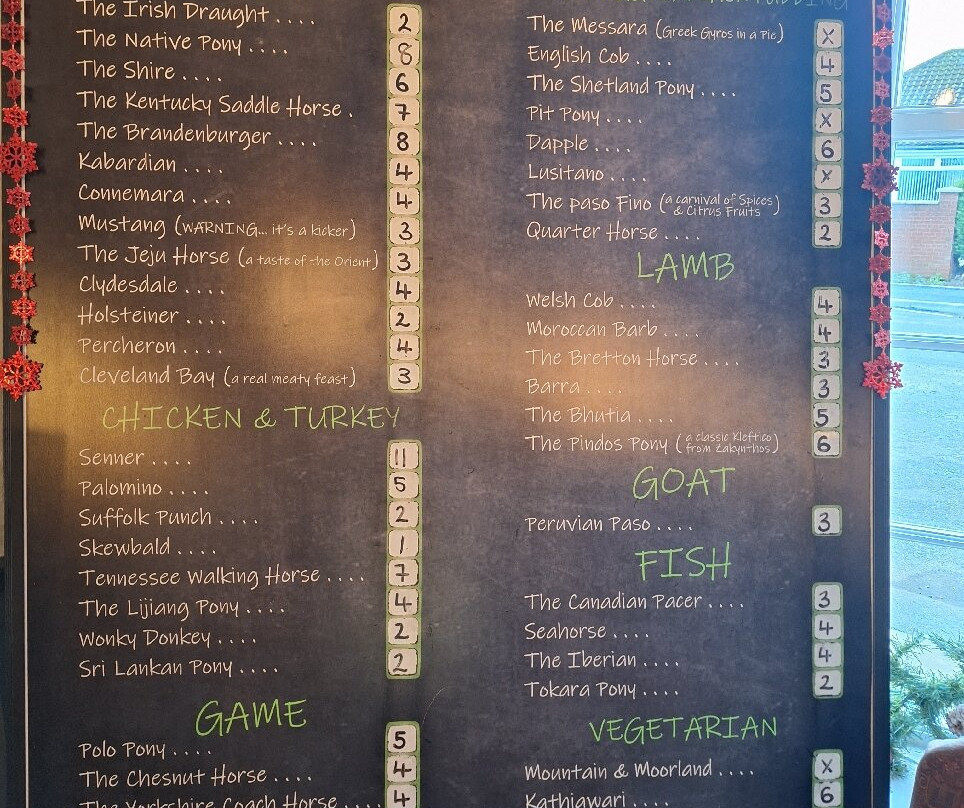 The Irish Draught .... 2
The Native Pony .... 8
The Shire .... 6
The Kentucky Saddle Horse . 7
The Brandenburger .... 8
Kabardian .... 4
Connemara .... 4
Mustang (WARNING... it's a kicker) 3
The Jeju Horse (a taste of the Orient) 3
Clydesdale .... 4
Holsteiner .... 2
Percheron .... 4
Cleveland Bay (a real meaty feast) 3
CHICKEN & TURKEY
Senner .... 11
Palomino .... 5
Suffolk Punch .... 2
Skewbald .... 1
Tennessee Walking Horse .... 7
The Lijiang Pony .... 4
Wonky Donkey .... 2
Sri Lankan Pony .... 2
GAME
Polo Pony .... 5
The Chesnut Horse .... 4
The Yorkshire Coach Horse .... 4
The Messara (Greek Gyros in a Pie) X
English Cob .... 4
The Shetland Pony .... 5
Pit Pony .... X
Dapple .... 6
Lusitano .... X
The Paso Fino (a carnival of Spices
& Citrus Fruits) 3
Quarter Horse .... 2
LAMB
Welsh Cob .... 4
Moroccan Barb .... 4
The Bretton Horse .... 3
Barra .... 3
The Bhutia .... 5
The Pindos Pony (a classic Kleftico
from Zakynthos) 6
GOAT
Peruvian Paso .... 3
FISH
The Canadian Pacer .... 3
Seahorse .... 4
The Iberian .... 4
Tokara Pony .... 2
VEGETARIAN
Mountain & Moorland .... X
Kathiawari .... 6